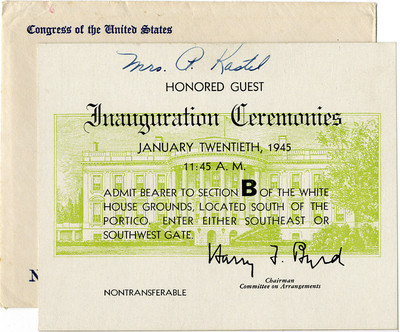 Congress of the United States
Mrs. P. Kastel
HONORED GUEST
Inauguration Ceremonies
JANUARY TWENTIETH, 1945
11:45 A. M.
ADMIT BEARER TO SECTION B OF THE WHITE
HOUSE GROUNDS, LOCATED SOUTH OF THE
PORTICO. ENTER EITHER SOUTHEAST OR
SOUTHWEST GATE.
Harry F. Byrd
Chairman
Committee on Arrangements
NONTRANSFERABLE
N